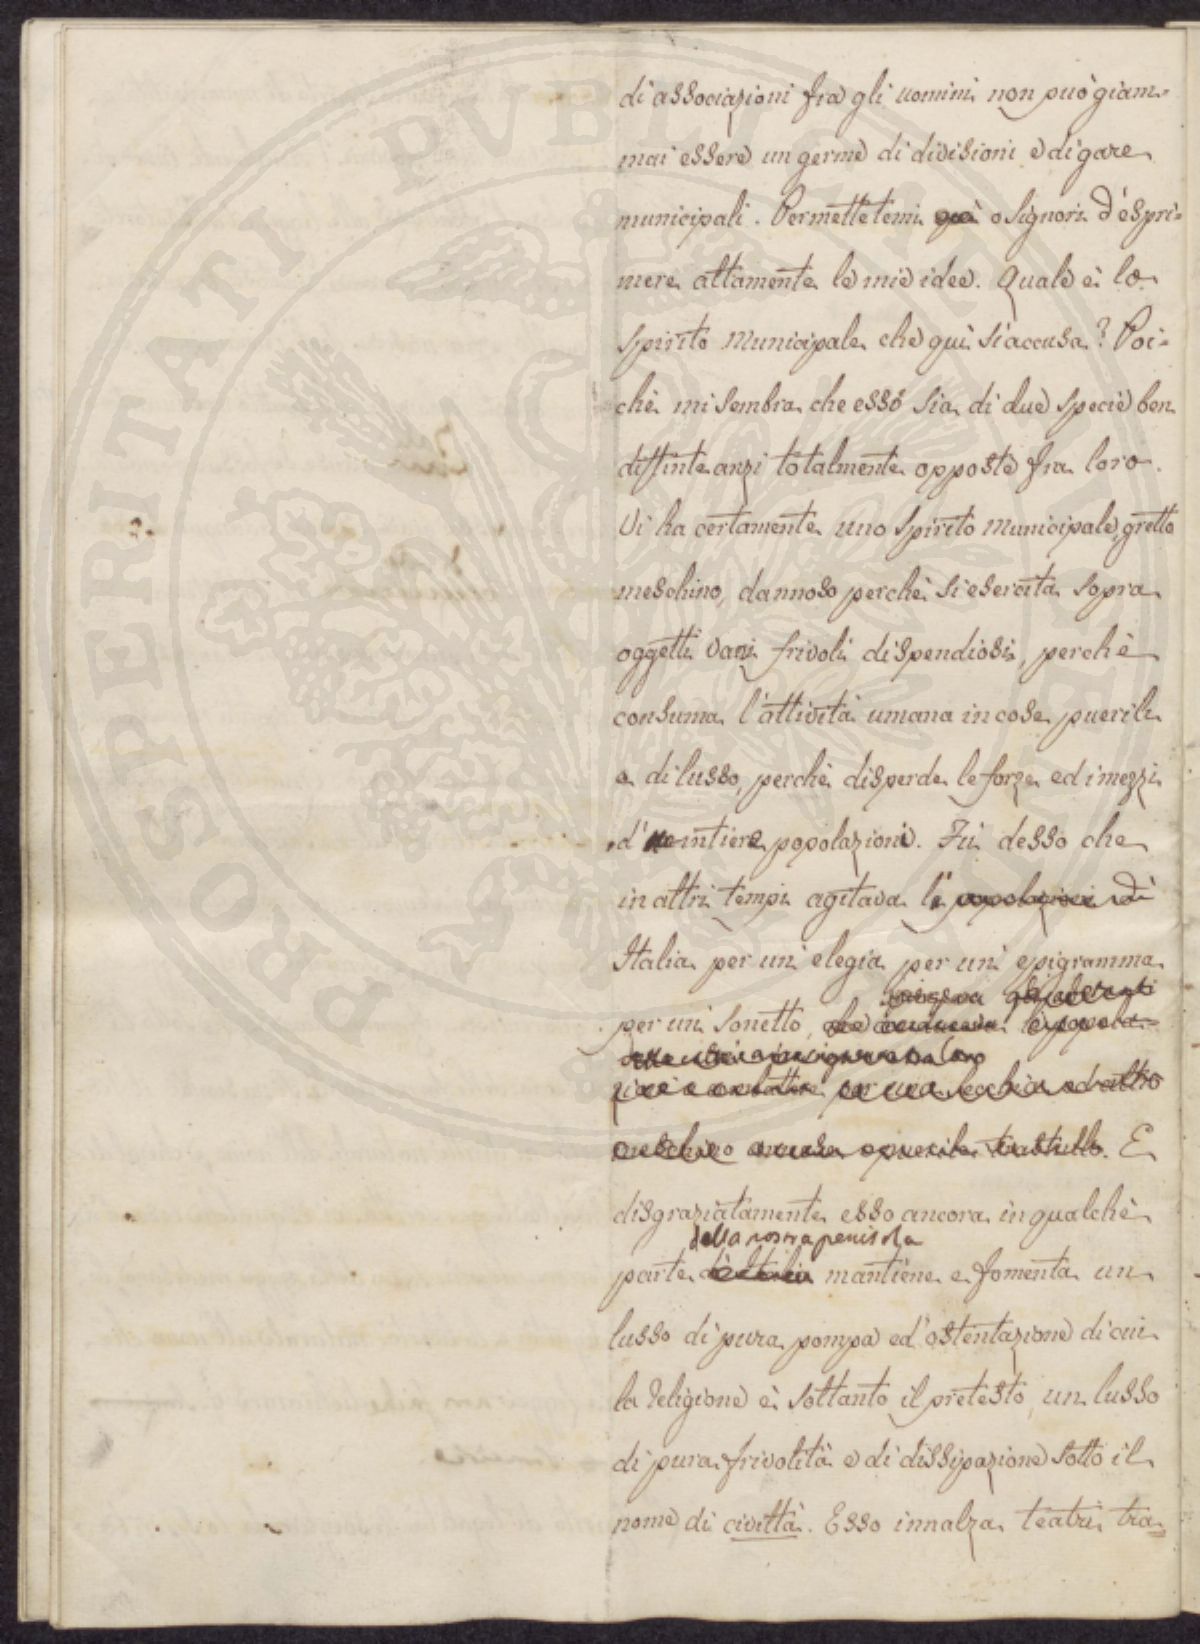 di associazioni fra gli uomini non può giam-
mai essere un germe di divisioni e di gare
municipali. Permettetemi o Signori d'espri-
mere altamente le mie idee. Quale è lo
spirito Municipale che qui si accusa? Poi-
chè mi sembra che esso sia di due specie ben
distinte anzi totalmente opposte fra loro.
Vi ha certamente uno spirito Municipale, gretto
meschino, dannoso perchè si esercita sopra
oggetti vani frivoli dispendiosi, perchè
consuma l'attività umana in cose puerili
e di lusso, perchè disperde le forze ed i mezzi
d'intiere popolazioni. Fu desso che
in altri tempi agitava l' popolazioni di
Italia per un' elegia per un' epigramma
per un' sonetto, popola-
zioni a combattere per una secchia ed altro
meschino o puerile trastullo. E
disgraziatamente esso ancora in qualche
della nostra penisola
parte d'Italia mantiene e fomenta un
lusso di pura pompa ed'ostentazione di cui
la Religione è soltanto il pretesto, un lusso
di pura frivolità e di dissipazione sotto il
nome di civiltà. Esso innalza teatri tra=
PROSPERITATI PVBLICAE